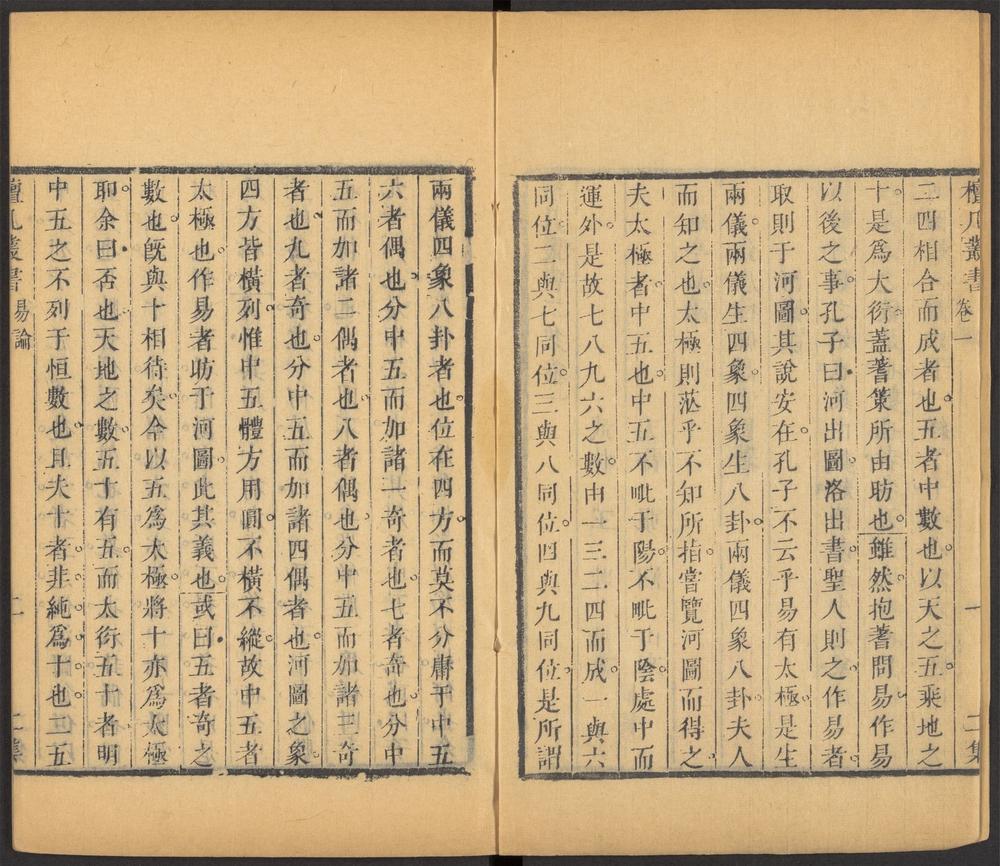 檀几叢書 卷一 一 二集
二四相合而成者也五者中數也以天之五乘地之
十是爲大衍蓋蓍策所由昉也雖然抱蓍問易作易
以後之事孔子曰河出圖洛出書聖人則之作易者
取則于河圖其說安在孔子不云乎易有太極是生
兩儀兩儀生四象四象生八卦兩儀四象八卦夫人
而知之也太極則茫乎不知所指嘗覽河圖而得之
夫太極者中五也中五不毗于陽不毗于陰處中而
運外是故七八九六之數由一三二四而成一與六
同位二與七同位三與八同位四與九同位是所謂
兩儀四象八卦者也位在四方而莫不分庸于中五
六者偶也分中五而加諸一奇者也七者奇也分中
五而加諸二偶者也八者偶也分中五而加諸三奇
者也九者奇也分中五而加諸四偶者也河圖之象
四方皆橫列惟中五體方用圓不橫不縱故中五者
太極也作易者昉于河圖此其義也或曰五者奇之
數也旣與十相待矣今以五爲太極將十亦爲太極
耶余曰否也天地之數五十有五而大衍五十者明
中五之不列于恒數也且夫十者非純爲十也二五
檀几叢書 易論 二 二集